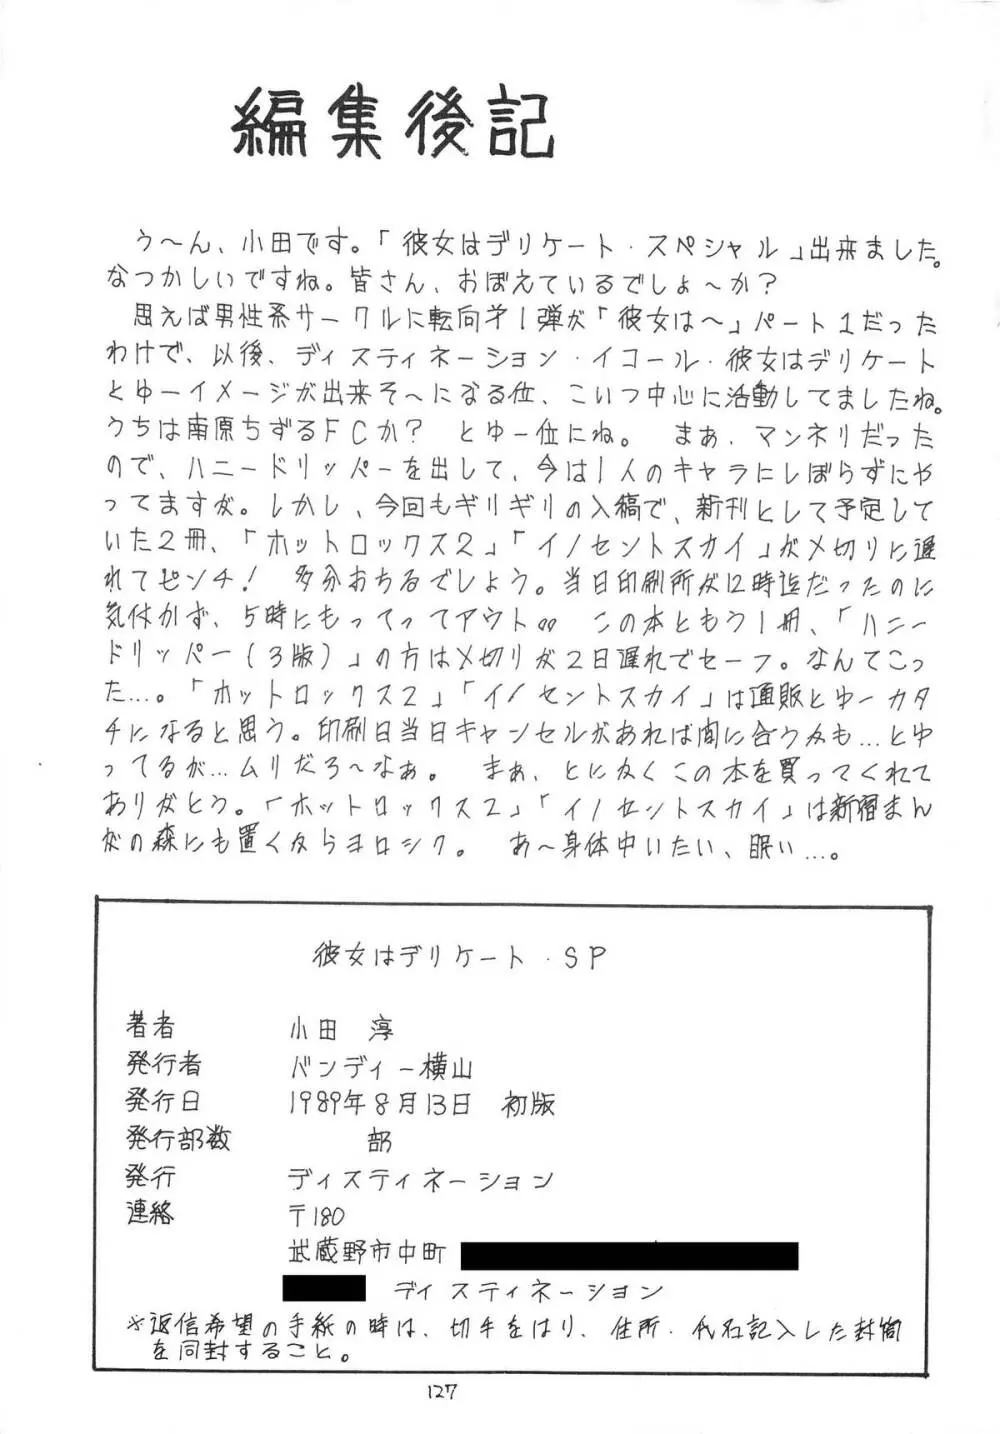 編集後記
う〜ん、小田です。「彼女はデリケート・スペシャル」出来ました。
なつかしいですね。皆さん、おぼえているでしょ〜か?
思えば男性系サークルに転向才1弾が「彼女は〜」パート1だった
わけで、以後、ディスティネーション・イコール・彼女はデリケート
とゆーイメージが出来そ〜になる位、こいつ中心に活動してましたね。
うちは南原ちずるFCか? とゆー位にね。 まぁ、マンネリだった
ので、ハニードリッパーを出して、今は1人のキャラにしぼらずにや
ってますが。しかし、今回もギリギリの入稿で、新刊として予定して
いた2冊、「ホットロックス2」「イノセントスカイ」が〆切りに遅
れてピンチ! 多分おちるでしょう。当日印刷所が12時迄だったのに
気付かず、5時にもってってアウト〃 この本ともう1冊、「ハニー
ドリッパー(3版)」の方は〆切りが2日遅れでセーフ。なんてこっ
た…。「ホットロックス2」「イノセントスカイ」は通販とゆーカタ
チになると思う。印刷日当日キャンセルがあれば間に合うかも…とゆ
ってるが…ムリだろ〜なぁ。 まぁ、とにかくこの本を買ってくれて
ありがとう。「ホットロックス2」「イノセントスカイ」は新宿まん
がの森にも置くからヨロシク。 あ〜身体中いたい、眠い…。
彼女はデリケート・SP
著者 小田 淳
発行者 バンディー横山
発行日 1989年8月13日 初版
発行部数 部
発行 ディスティネーション
連絡 〒180
武蔵野市中町
ディスティネーション
※返信希望の手紙の時は、切手をはり、住所・氏名記入した封筒
を同封すること。
127